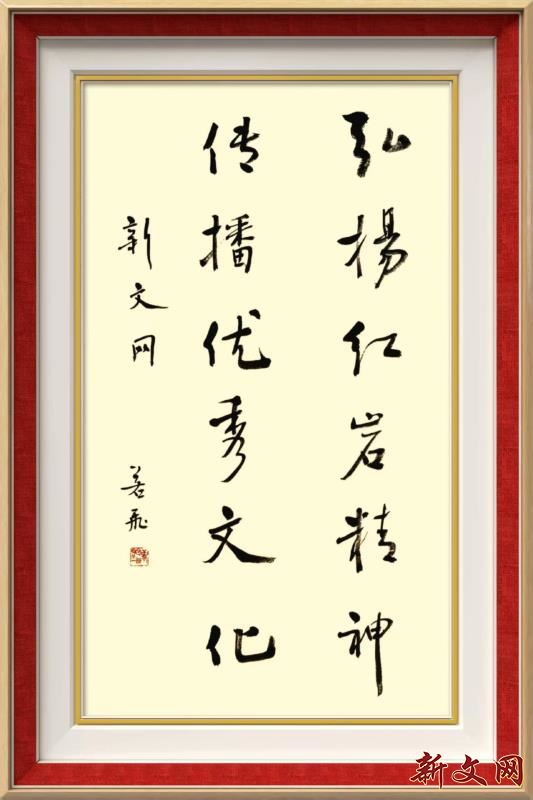 弘揚红岩精神
传播优秀文化
新文网
若飛
新文网